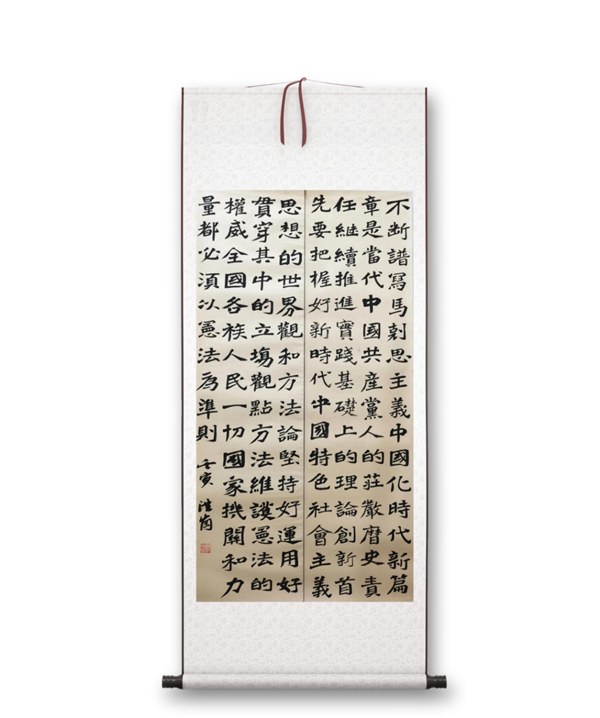 不断譜寫馬剋思主義中國化時代新篇
章是當代中國共産黨人的莊嚴曆史責
任継續推進實踐基礎上的理論創新首
先要把握好新時代中國特色社會主義
思想的世界觀和方法論堅持好運用好
貫穿其中的立塲觀點方法維護憲法的
權威全國各族人民一切國家機關和力
量都必須以憲法為準則 壬寅